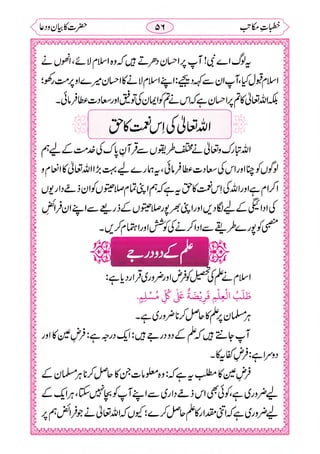 خطباتِ مکاتب
۵۶
حضرت کا بیان ودعا
اے نبی! یہ لوگ آپ پر احسان دھرتے ہیں کہ وہ اسلام لائے، انھوں نے
اسلام قبول کیا، آپ ان سے کہہ دیجیے: اپنے اسلام لانے کا احسان میرے اوپر مت رکھو؛
بلکہ اللہ تعالیٰ کا تم پر احسان ہے کہ اس نے تم کو ایمان کی توفیق اور سعادت عطا فرمائی۔
اللہ تعالیٰ کی اِس نعمت کا حق
اللہ تبارک وتعالیٰ نے مختلف طریقوں سے قرآنِ پاک کی خدمت کے لیے ہم
لوگوں کو چنا اور اس کی سعادت عطا فرمائی، یہ ہمارے لیے بہت بڑا اللہ تعالیٰ کا انعام و
اکرام ہے اور اللہ کی اِس نعمت کا حق یہ ہے کہ ہم اپنی تمام صلاحیتوں کو ان ذمے داریوں
کی ادائیگی کے لیے لگادیں اور اپنی بھرپور صلاحیتوں کے ذریعے سے اپنے ان فرائضِ
منصبی کو پورے طریقے سے ادا کرنے کی کوشش اور اہتمام کریں۔
علم کے دو درجے
اسلام نے علم کی تحصیل کو فرض اور ضروری قرار دیا ہے:
طَلَبُ الْعِلْمِ فَرِيْضَةٌ عَلٰى كُلِّ مُسْلِمٍ.
ہر مسلمان پر علم کا حاصل کرنا ضروری ہے۔
آپ جانتے ہیں کہ علم کے دو درجے ہیں: ایک درجہ ہے: فرضِ عین کا اور
دوسرا ہے: فرضِ کفایہ کا۔
فرضِ عین کا مطلب یہ ہے کہ: وہ معلومات جن کا حاصل کرنا ہر مسلمان کے
لیے ضروری ہے، کوئی بھی اس ذمے داری سے اپنے آپ کو بچا نہیں سکتا، ہر ایک کے
لیے ضروری ہے کہ اتنی مقدار کا علم حاصل کرے؛ کیوں کہ اللہ تعالیٰ نے جو فرائض ہم پر